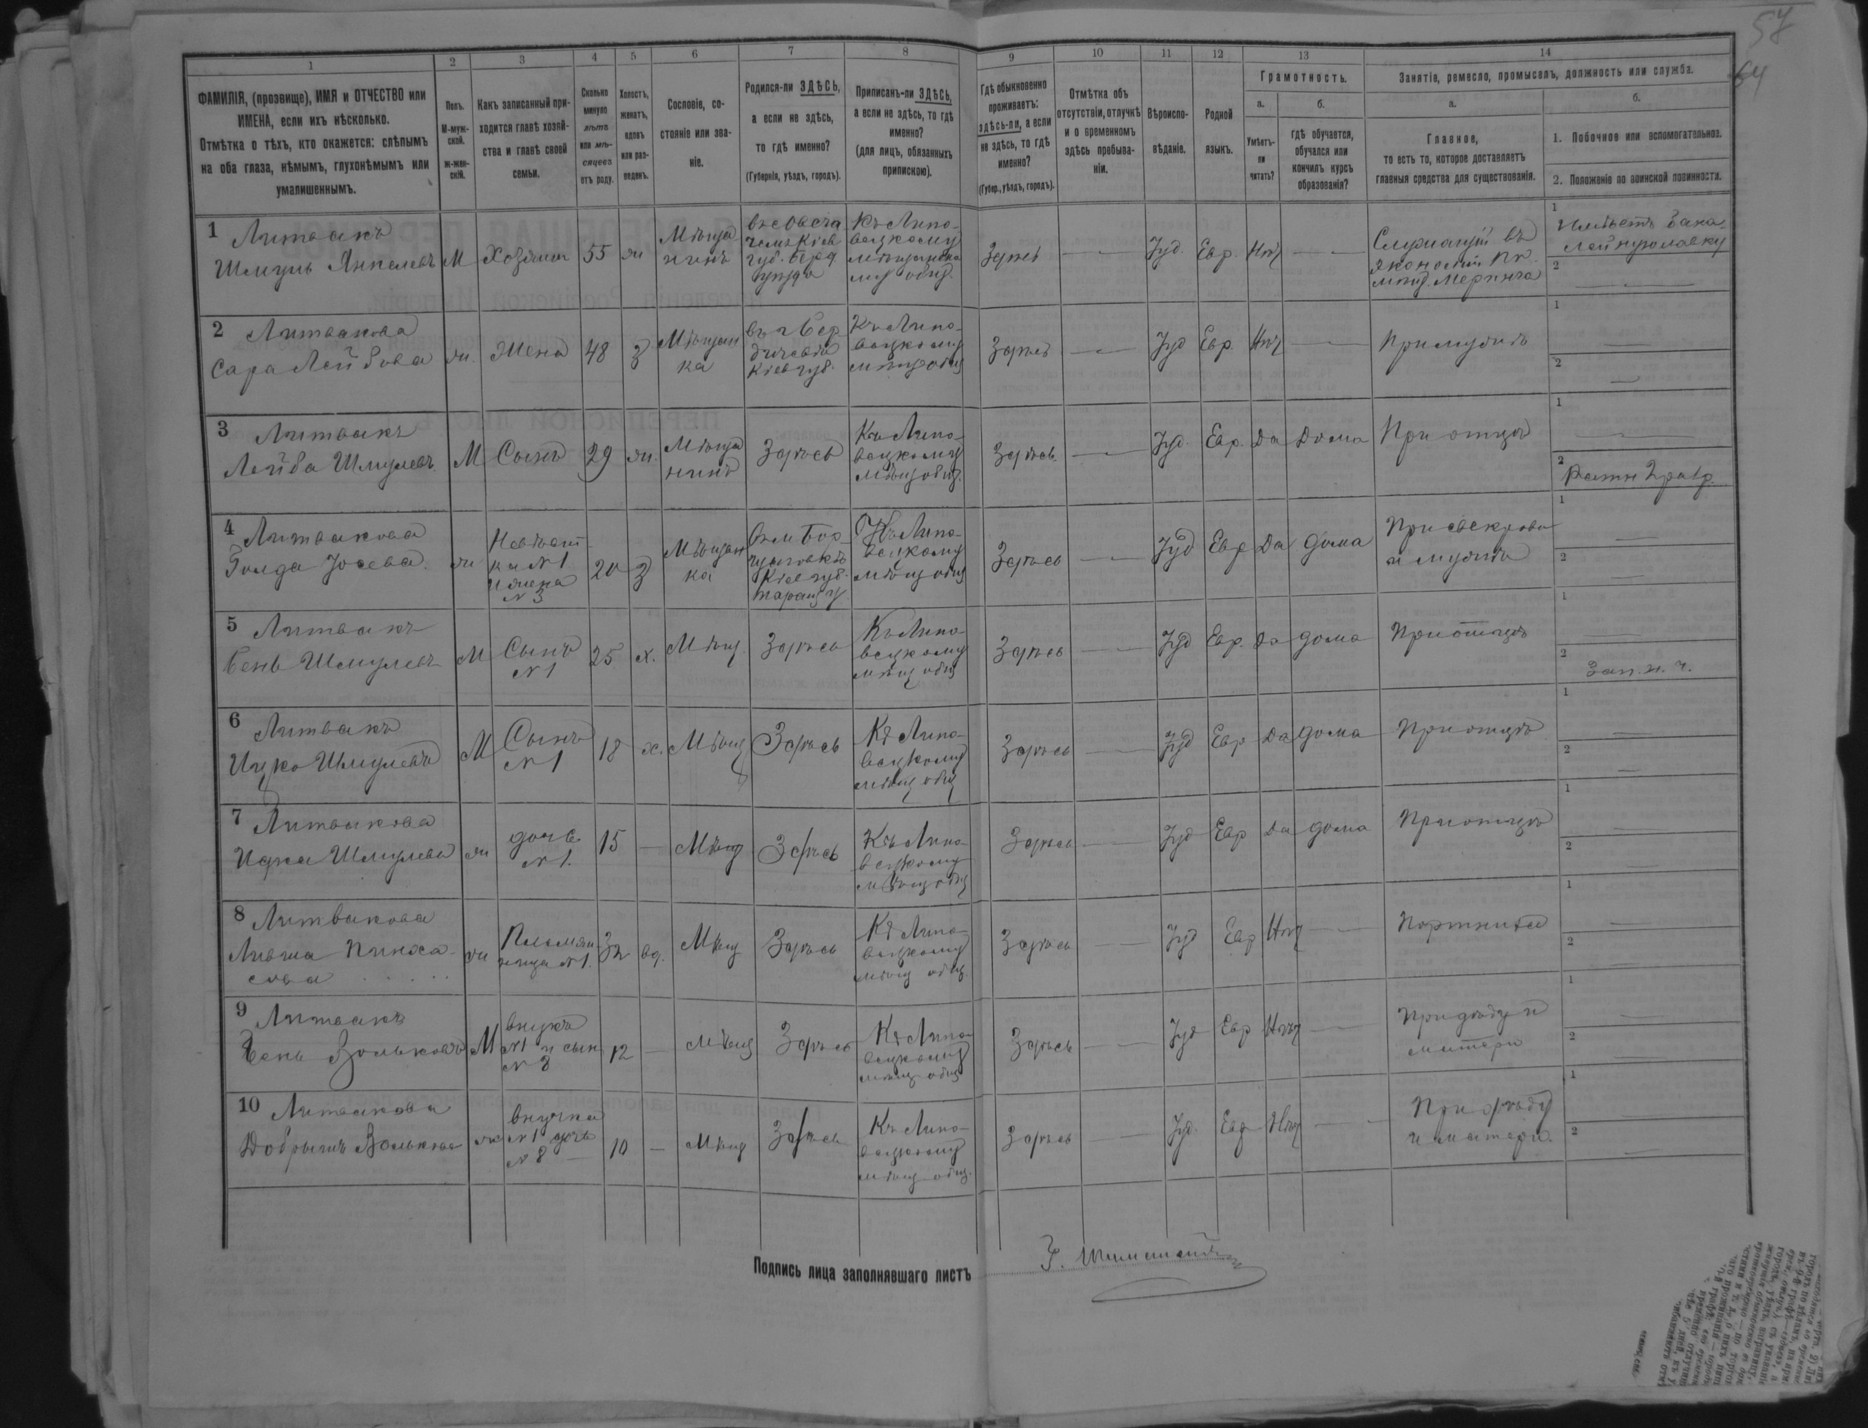 57
64
1 2 3 4 5 6 7 8 9 10 11 12 13 14
ФАМИЛІЯ, (прозвище), ИМЯ и ОТЧЕСТВО или
ИМЕНА, если ихъ нѣсколько.
Отмѣтка о тѣхъ, кто окажется: слѣпымъ
на оба глаза, нѣмымъ, глухонѣмымъ или
умалишеннымъ.
Полъ.
М-муж-
ской.
Ж-жен-
скій.
Какъ записанный при-
ходится главѣ хозяй-
ства и главѣ своей
семьи.
Сколько
минуло
лѣтъ
или мѣ-
сяцевъ
отъ роду.
Холостъ,
женатъ,
вдовъ
или раз-
веденъ.
Сословіе, со-
стояніе или зва-
ніе.
Родился-ли ЗДѢСЬ,
а если не здѣсь,
то гдѣ именно?
(Губернія, уѣздъ, городъ).
Приписанъ-ли ЗДѢСЬ,
а если не здѣсь, то гдѣ
именно?
(для лицъ, обязанныхъ
припискою).
Гдѣ обыкновенно
проживаетъ:
здѣсь-ли, а если
не здѣсь, то гдѣ
именно?
(Губер., уѣздъ, городъ).
Отмѣтка объ
отсутствіи, отлучкѣ
и о временномъ
здѣсь пребыва-
ніи.
Вѣроиспо-
вѣданіе.
Родной
языкъ.
Грамотность.
а.
Умѣетъ-
ли
читать?
б.
гдѣ обучается,
обучался или
кончилъ курсъ
образованія?
Занятіе, ремесло, промыселъ, должность или служба.
а.
Главное,
то есть то, которое доставляетъ
главныя средства для существованія.
б.
1. Побочное или вспомогательное.
2. Положеніе по воинской повинности.
1 Литвакъ
Шмуль Янкелевъ
М
Хозяинъ
55
ж
Мѣща
нинъ
Къ Липо-
вецкому
Здѣсь
Іуд.
Евр.
Нѣт
Служащій въ
Имѣетъ бака-
лейную лавку
2 Литвакова
Сара Лейбова
ж.
Жена
48
з
Мѣщан
ка
въ г. Бер
дичевѣ
Кіев губ.
Къ Липо-
вецкому
мѣщ общ
Здѣсь
Іуд
Евр.
Нѣт
При мужѣ
3 Литвакъ
Лейба Шмулевъ
М
Сынъ
29
ж.
Мѣща
нинъ
Здѣсь
Къ Липо-
вецкому
мѣщ общ.
Здѣсь
Іуд.
Евр.
Да
Дома
При отцѣ
Ратн 2 разр.
4 Литвакова
Голда Іосева
ж
Невѣст
ка №1
и жена
№3
20
з
Мѣщан
ка
Кіев губ.
Таращ у
Къ Липо-
вецкому
мѣщ общ
Здѣсь
Іуд
Евр
Да
дома
При свекрови
и мужѣ
5 Литвакъ
Бень Шмулевъ
М
Сынъ
№1
25
х.
Мѣщ.
Здѣсь
Къ Липо-
вецкому
мѣщ общ
Здѣсь
Іуд
Евр.
Да
дома
При отцѣ
Зап. н. ч.
6 Литвакъ
Ицко Шмулевъ
М
Сынъ
№1
18
х.
Мѣщ
Здѣсь
Къ Липо-
вецкому
мѣщ общ
Здѣсь
Іуд
Евр
Да
дома
При отцѣ
7 Литвакова
Шмулева
ж
дочь
№1.
15
Мѣщ
Здѣсь
Къ Липо-
вецкому
мѣщ общ
Здѣсь
Іуд
Евр
Да
дома
При отцѣ
8 Литвакова
Пинха-
сова
ж
Племян
ница №1.
32
вд.
Мѣщ
Здѣсь
Къ Липо-
вецкому
мѣщ общ.
Здѣсь
Іуд
Евр
Нѣт
Портниха
9 Литвакъ
Бень Вольковъ
М
внукъ
№1 и сын
№8
12
Мѣщ
Здѣсь
Къ Липо-
вецкому
мѣщ общ
Здѣсь
Іуд
Евр
Нѣт
При дѣду и
матери
10 Литвакова
Добрышъ Волькова
ж
внучка
№1 дочь
№8
10
Мѣщ
Здѣсь
Къ Липо-
вецкому
мѣщ общ.
Здѣсь
Іуд.
Евр
Нѣт
При дѣду
и матери
Подпись лица заполнявшаго листъ